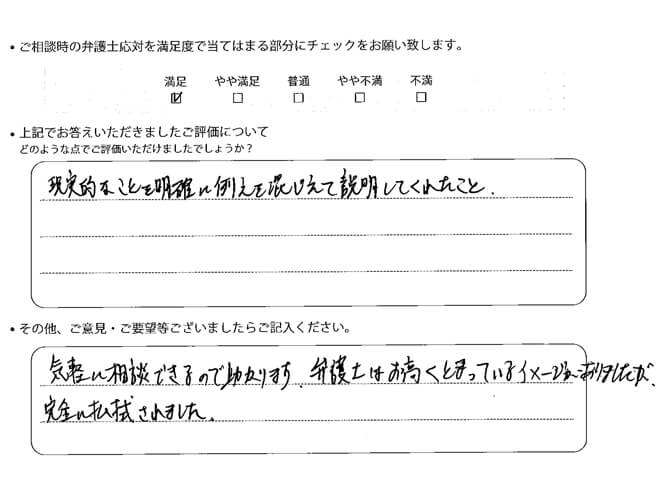 • ご相談時の弁護士応対を満足度で当てはまる部分にチェックをお願い致します。
満足 やや満足 普通 やや不満 不満
☑ □ □ □ □
• 上記でお答えいただきましたご評価について
どのような点でご評価いただけましたでしょうか？
現実的なことを明確に例えを混じえて説明してくれたこと.
• その他、ご意見・ご要望等ございましたらご記入ください。
気軽に相談できるので助かります. 弁護士はお高くとまっているイメージがありましたが、
完全に払拭されました.